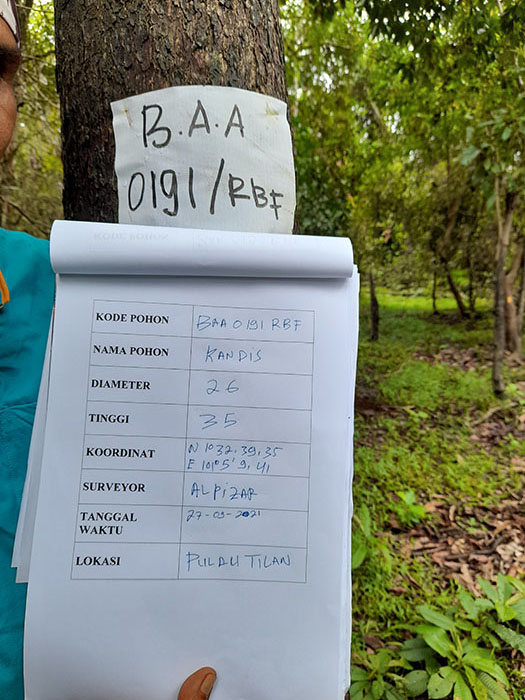 B.A.A
0191/RBF
KODE POHON BAA 0191 RBF
NAMA POHON KANDIS
DIAMETER 26
TINGGI 35
KOORDINAT N 1°32,39,35
E 101°5'9,41
SURVEYOR ALPIZAR
TANGGAL WAKTU 27-09-2021
LOKASI PULAU TILAN